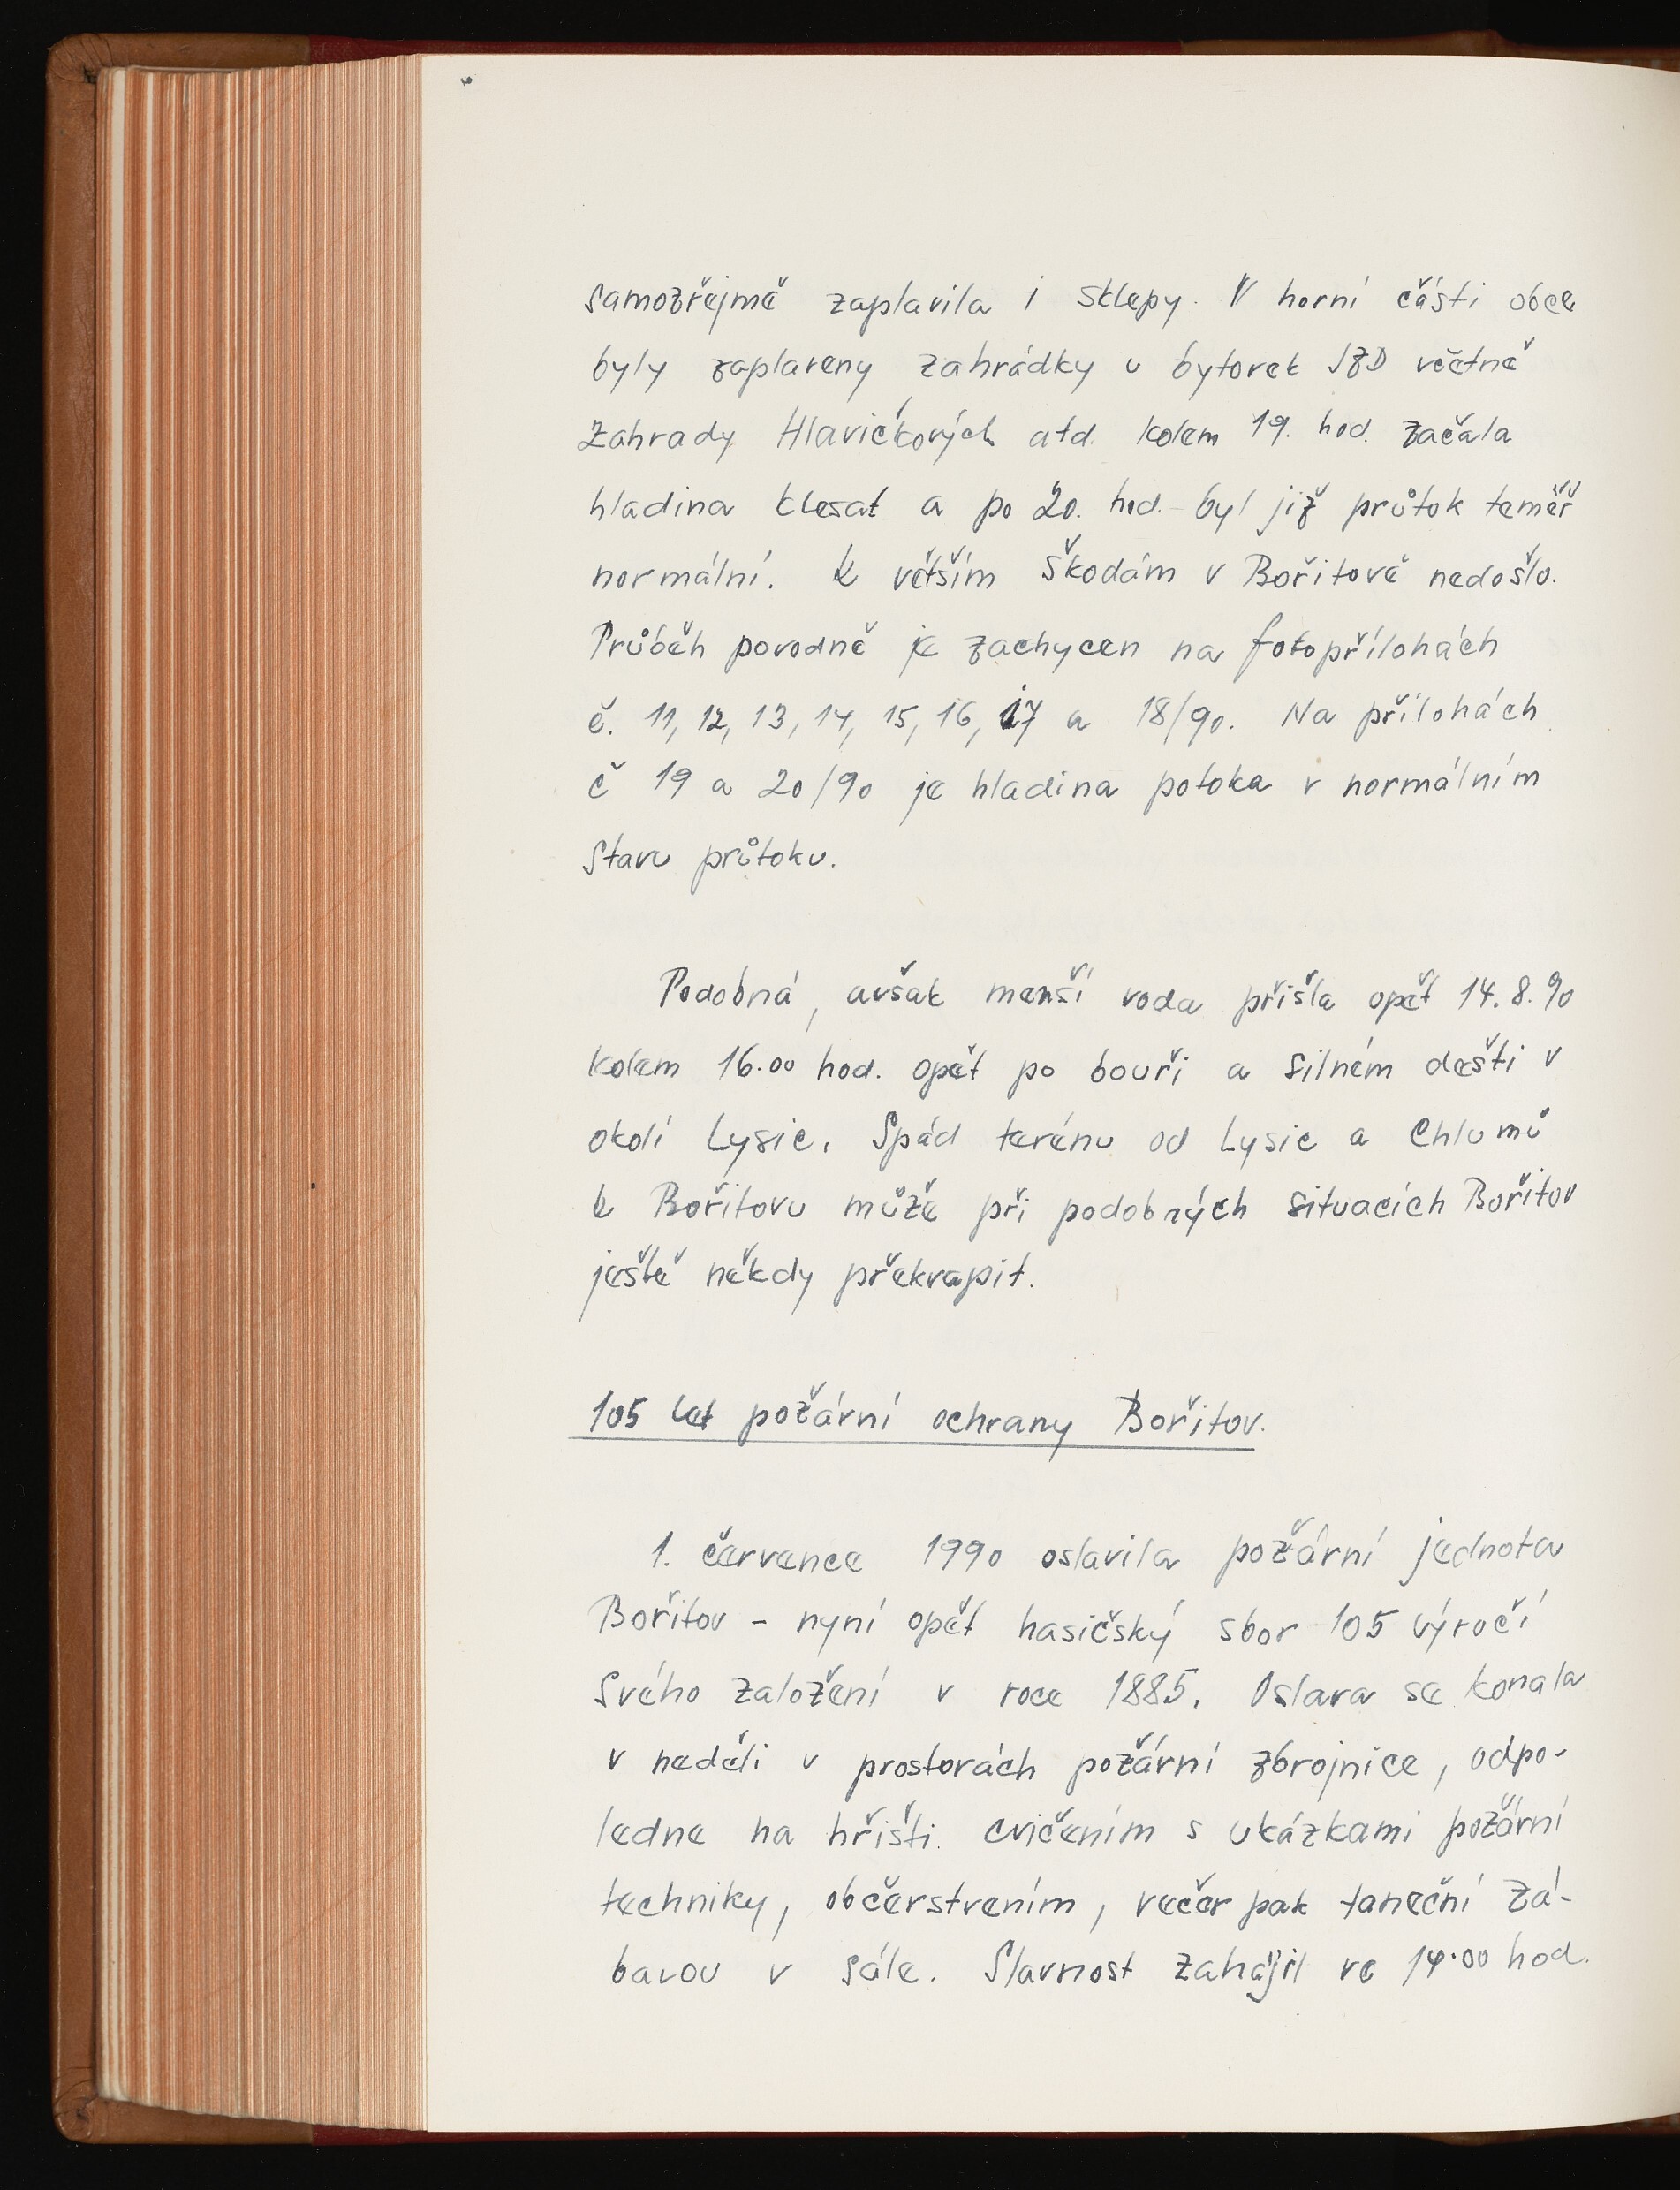 samozřejmě zaplavila i sklepy. V horní části obce
byly zaplaveny zahrádky u bytovek JZD včetně
zahrady Hlavičkových atd. kolem 19. hod. začala
hladina klesat a po 20. hod. byl již průtok téměř
normální. K větším škodám v Bořitově nedošlo.
Průběh povodně je zachycen na fotopřílohách
č. 11, 12, 13, 14, 15, 16, 17 a 18/90. Na přílohách
č 19 a 20/90 je hladina potoka v normálním
stavu průtoku.
Podobná, avšak menší voda přišla opět 14.8.90
kolem 16.00 hod. opět po bouři a silném dešti v
okolí Lysic. Spád terénu od Lysic a Chlumů
k Bořitovu může při podobných situacích Bořitov
ještě někdy překvapit.
105 let požární ochrany Bořitov.
1. července 1990 oslavila požární jednota
Bořitov - nyní opět hasičský sbor 105 výročí
svého založení v roce 1885. Oslava se konala
v neděli v prostorách požární zbrojnice, odpo-
ledne na hřišti. cvičením s ukázkami požární
techniky, občerstvením, večer pak taneční zá-
bavou v sále. Slavnost zahájil ve 14.00 hod.